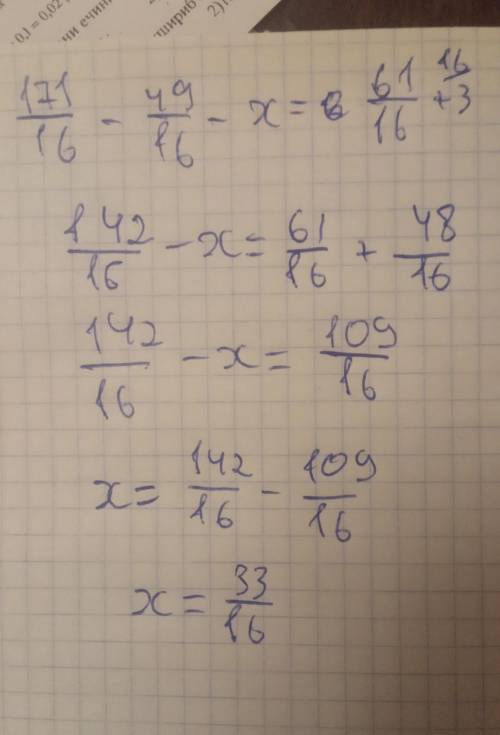 0,1 = 0,02
2)
171/16 - 49/16 - x = 61/16 + 3 16/
142/16 - x = 61/16 + 48/16
142/16 - x = 109/16
x = 142/16 - 109/16
x = 33/16